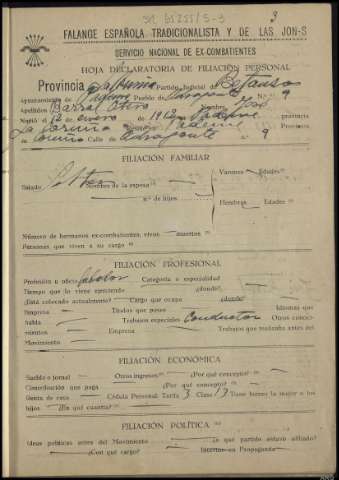 3
FALANGE ESPAÑOLA TRADICIONALISTA Y DE LAS JON-S
SERVICIO NACIONAL DE EX-COMBATIENTES
HOJA DECLARATORIA DE FILIACIÓN PERSONAL
Provincia La Coruña Partido Judicial de Betanzos
Ayuntamiento de Paderne Pueblo de N.º 9
Apellidos Barral Nombre José
Nació el 12 de enero de 1912 en Paderne provincia
La Coruña Provincia
de Coruña Calle de 9
FILIACIÓN FAMILIAR
Estado Soltero Nombre de la esposa Varones Edades
n.º de hijos
Hembras Edades
Número de hermanos ex-combatientes, vivos muertos
Personas que viven a su cargo
FILIACIÓN PROFESIONAL
Profesión u oficio labrador Categoría o especialidad
Tiempo que la viene ejerciendo ¿donde?
¿Está colocado actualmente? Cargo que ocupa ¿donde?
Empresa Títulos que posee Idiomas que
habla Trabajos especiales Conductor Otros conoci-
mientos Empresa Trabajos que realizaba antes del
Movimiento
FILIACIÓN ECONÓMICA
Sueldo o jornal Otros ingresos ¿Por qué concepto?
Contribución que paga ¿Por qué concepto?
Renta de casa Cédula Personal Tarifa 3 Clase 13 Tiene bienes la mujer o los
hijos ¿En qué cuantía?
FILIACIÓN POLÍTICA
Ideas políticas antes del Movimiento ¿a qué partido estuvo afiliado?
¿Con qué cargo? Intervino en Propaganda